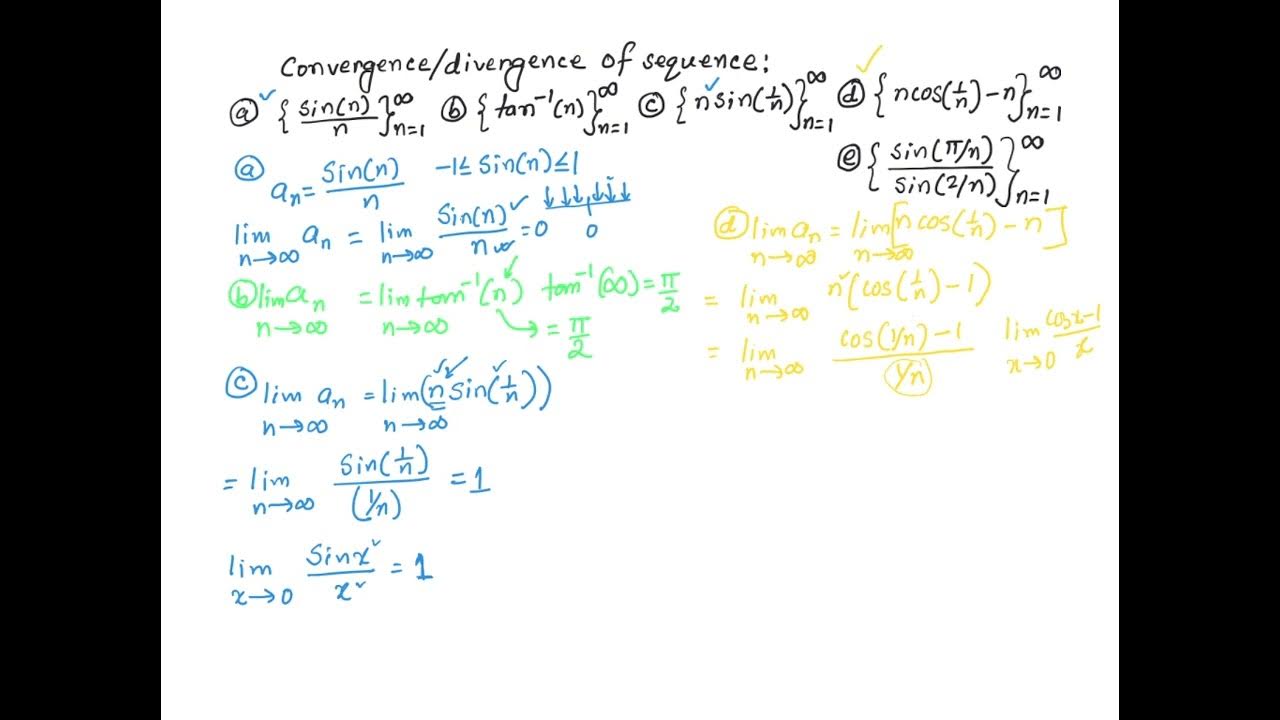 Convergence/divergence of sequence:
ⓐ {sin(n)/n}_{n=1}^∞ ⓑ {tan⁻¹(n)}_{n=1}^∞ ⓒ {n sin(1/n)}_{n=1}^∞ ⓓ {n cos(1/n) - n}_{n=1}^∞
ⓔ {sin(π/n)/sin(2/n)}_{n=1}^∞
ⓐ
a_n = Sin(n)/n -1 ≤ Sin(n) ≤ 1
lim_{n→∞} a_n = lim_{n→∞} Sin(n)/n = 0 0
ⓑ lim_{n→∞} a_n = lim_{n→∞} tan⁻¹(n) tan⁻¹(∞) = π/2
= π/2
ⓒ lim_{n→∞} a_n = lim_{n→∞} (n Sin(1/n))
= lim_{n→∞} Sin(1/n)/(1/n) = 1
lim_{x→0} Sin x/x = 1
ⓓ lim_{n→∞} a_n = lim_{n→∞} [n cos(1/n) - n]
= lim_{n→∞} n(cos(1/n) - 1)
= lim_{n→∞} cos(1/n) - 1/(1/n) lim_{x→0} cosx-1/x